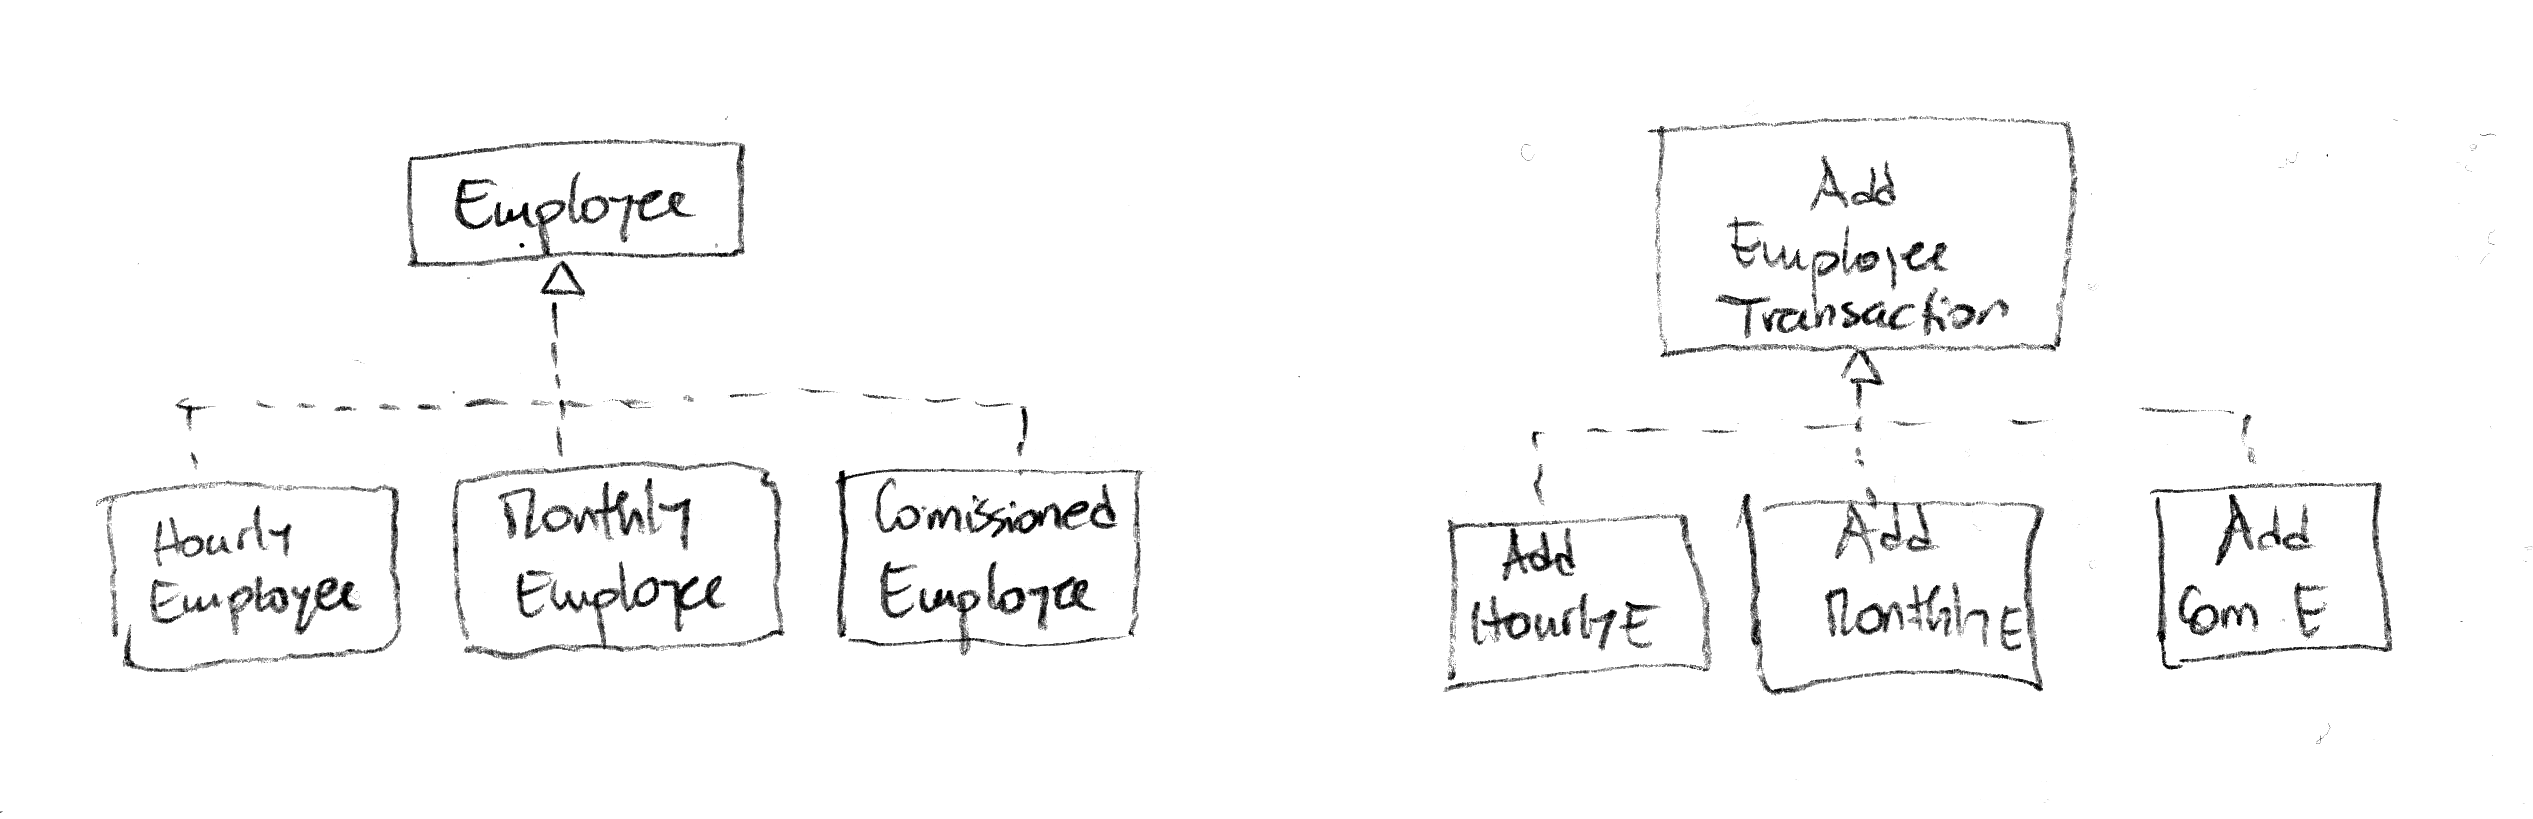 Employee
Hourly
Employee
Monthly
Employee
Comissioned
Employee
Add
Employee
Transaction
Add
Hourly E
Add
Monthly E
Add
Com E